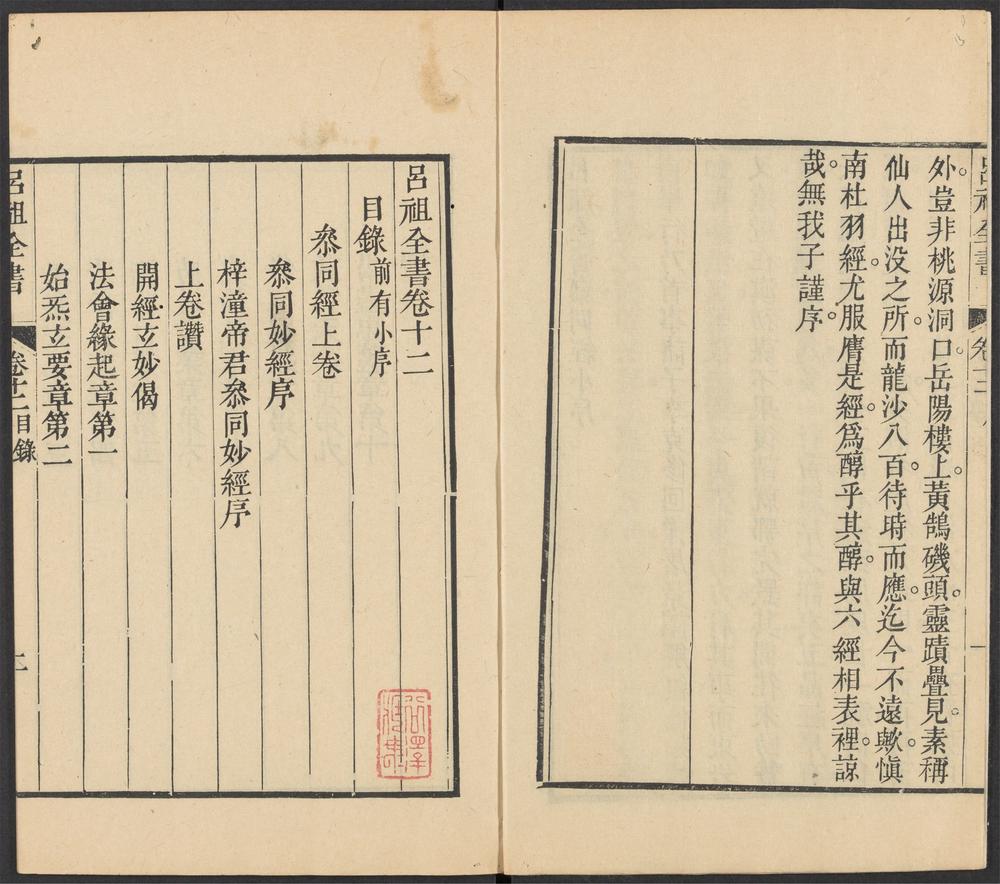 呂祖全書
卷十二
一
外豈非桃源洞口岳陽樓上黃鵠磯頭靈蹟疊見素稱
仙人出没之所而龍沙八百待時而應迄今不遠歟愼
南杜羽經尤服膺是經爲醇乎其醇與六經相表裡諒
哉無我子謹序
呂祖全書卷十二
目錄前有小序
叅同經上卷
叅同妙經序
梓潼帝君叅同妙經序
上卷讚
開經玄妙偈
法會緣起章第一
始炁玄要章第二
呂祖全書
卷十二目錄